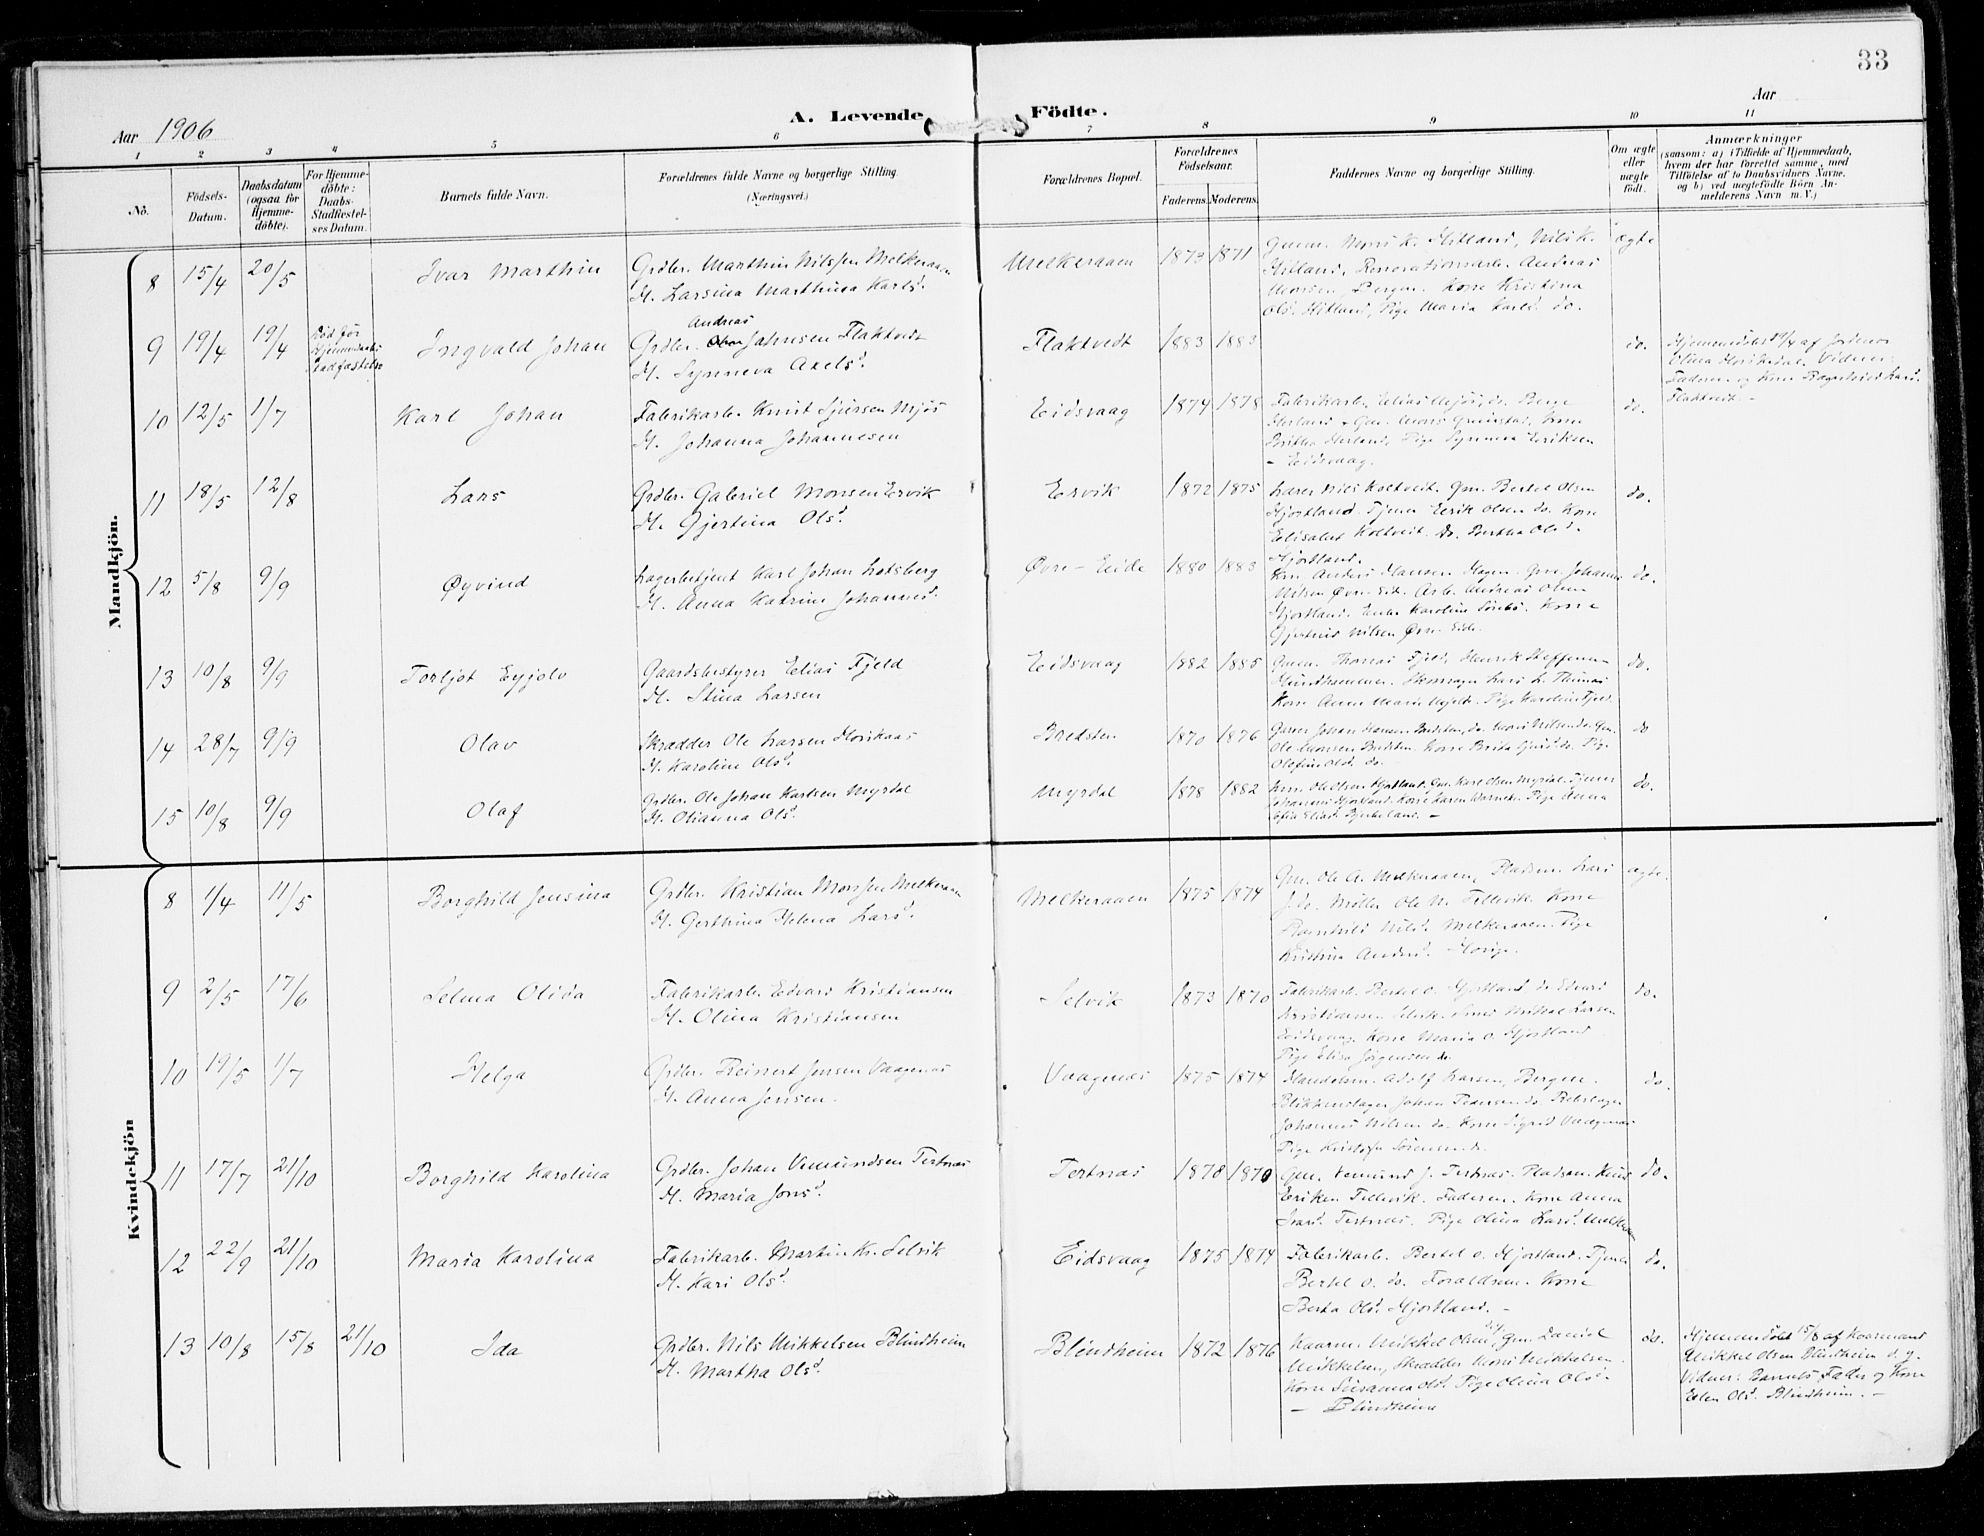 33
A. Levende Födte.
Aar 1906
Aar
1 2 3 4 5 6 7 8 9 10 11
No.
Födsels-Datum.
Daabsdatum (ogsaa for Hjemme-döbte).
For Hjemme-döbte: Daabs-Stadfæstel-ses Datum.
Barnets fulde Navn.
Forældrenes fulde Navne og borgerlige Stilling.
(Næringsvei.)
Forældrenes Bopæl.
Forældrenes Födselsaar.
Faderens. Moderens.
Faddernes Navne og borgerlige Stilling.
Om ægte eller uægte födt.
Anmærkninger
(saasom: a) i Tilfælde af Hjemmedaab,
hvem der har forrettet samme, med
Tilföielse af to Daabsvidners Navne,
og b) ved uægtefödte Börn An-
melderens Navn m. V.)
Mandkjön.
8 15/4 20/5 Ivar Marthin
Grdbr. Marthin Nilssen Melkeraaen
H. Larsina Marthina Karlsd.
Melkeraaen 1873 1871
Gmm. Mons K. Hitland, Nils K.
Hitland, Renovationsarb. Andreas
Monsen Bergen. Kone Kristina
Olsd. Hitland, Pige Maria Karlsd. do.
ægte
9 19/4 19/4 Død før Hjemmedaabs Stadfæstelse
Ingvald Johan
Andreas
Grdbr. Johnsen Flaktvedt
H. Synneva Axelsd.
Flaktvedt 1883 1883
do.
Hjemmedøbt 19/4 af Jordmor
Olina Vidner:
Faderen og Kone Larsd.
Flaktveit. —
10 12/5 1/7 Karl Johan
Fabrikarb. Knut Sjursen Mjøs
H. Johanna Johannesen
Eidsvaag 1874 1878
Fabrikarb. Elias Mjøs, do. Børge
Herland, Gm. Mons Kone
Britha Herland, Pige Synneva Eriksen
— Eidsvaag.
do.
11 18/5 12/8 Lars
Grdbr. Gabriel Monsen Ervik
H. Gjertina Olsd.
Ervik 1872 1875
Lærer Nils Koltveit. Gm. Bertel Olsen
Hjortland. Tjener Eirik Olsen do. Kone
Elisabet Koltveit. do. Bertha Olsd.
Hjortland.
do.
12 5/8 9/9 Øyvind
Lagerbetjent Karl Johan Lotsberg
H. Anna Katrine Johannesd.
Øvre-Eide 1880 1883
Anders Hansen Hagen. Johannes
Nilsen Øvre-Eide. Arb. Andreas Olsen
Hjortland. Enke Karoline Kone
Gjertrud Nilsen Øvre-Eide.
do.
13 10/8 9/9 Torljot Eyjolv
Gaardsbestyrer Elias Fjeld
H. Stina Larsen
Eidsvaag 1882 1885
Gmm. Thomas Fjeld, Henrik Steffensen
Hundhammer. Skomager Lars L.
Kone Anne Marie Pige Karoline Fjeld.
do.
14 28/7 9/9 Olav
Skrædder Ole Larsen
H. Karoline Olsd.
Bredsten 1870 1876
Garver Johan Hansen Bredsten, do. Mons Nilsen do. Gm.
Ole Monsen Bredsten. Kone Brita do. Pige
Olefine Olsd. do. —
do
15 10/8 9/9 Olaf
Grdbr. Ole Johan Karlsen Myrdal
H. Olianna Olsd.
Myrdal 1878 1882
Ole Olsen Hjortland, Gm. Karl Olsen Myrdal. Tjener
Johannes Hjortland. Kone Karen Pige Anna
Sofia Eliasd. —
do.
Kvindekjön
8 1/4 11/5 Borghild Jensina
Grdbr. Kristian Monssen Melkeraaen
H. Gerthina Helena Larsd.
Melkeraaen 1875 1874
Gm. Ole A. Melkeraaen, Pladsm. Lars
J. do. Møller Ole N. Tellevik. Kone
Ramhild Nilsd. Melkeraaen. Pige
Kristina Andersd.
ægte.
9 2/5 17/6 Selma Olida
Fabrikarb. Edvard Kristiansen
H. Olina Kristiansen
Selvik 1873 1870
Fabrikarb. Bertel O. Hjortland do. Edvard
Kristiansen Selvik. Smed Mikal Larsen
Eidsvaag. Kone Maria O. Hjortland
Pige Elisa Jørgensen do.
do.
10 19/5 1/7 Helga
Grdbr. Reinert Jensen Vaagenæs
H. Anna Jensen.
Vaagenæs 1875 1874
Handelsm. Adolf Larsen, Bergen.
Blikkenslager Johan Pedersen do. Rebslager
Johannes Nilsen do. Kone Sigrid Vaagenæs
Pige Kristofa Sørensen do.
do.
11 17/7 21/10 Borghild Karolina
Grdbr. Johan Vemundsen Tertnæs
H. Maria Jonsd.
Tertnæs 1878 1870
Gm. Vemund J. Tertnæs. Pladsm. Knud
Eriksen Tellevik. Faderen. Kone Anna
Ivarsd. Tertnæs. Pige Olina Larsd. Melkeraaen
do.
12 22/9 21/10 Maria Karolina
Fabrikarb. Martin Kr. Selvik
H. Kari Olsd.
Eidsvaag 1875 1874
Fabrikarb. Bertel O. Hjortland. Tjener
Bertel O. do. Forældrene. Kone
Berta Olsd. Hjortland. —
do.
13 10/8 15/8 21/10 Ida
Grdbr. Nils Mikkelsen Blindheim
H. Martha Olsd.
Blindheim 1872 1876
Kaarm. Mikkel Olsen, Gm. Daniel
Mikkelsen, Skrædder Mons Mikkelsen.
Kone Susanna Olsd. Pige Olina Olsd.
— Blindheim
do.
Hjemmedøbt 15/8 af Kaarmand
Mikkel Olsen Blindheim d. y.
Vidner: Barnets Fader og Kone
Elen Olsd. Blindheim. —